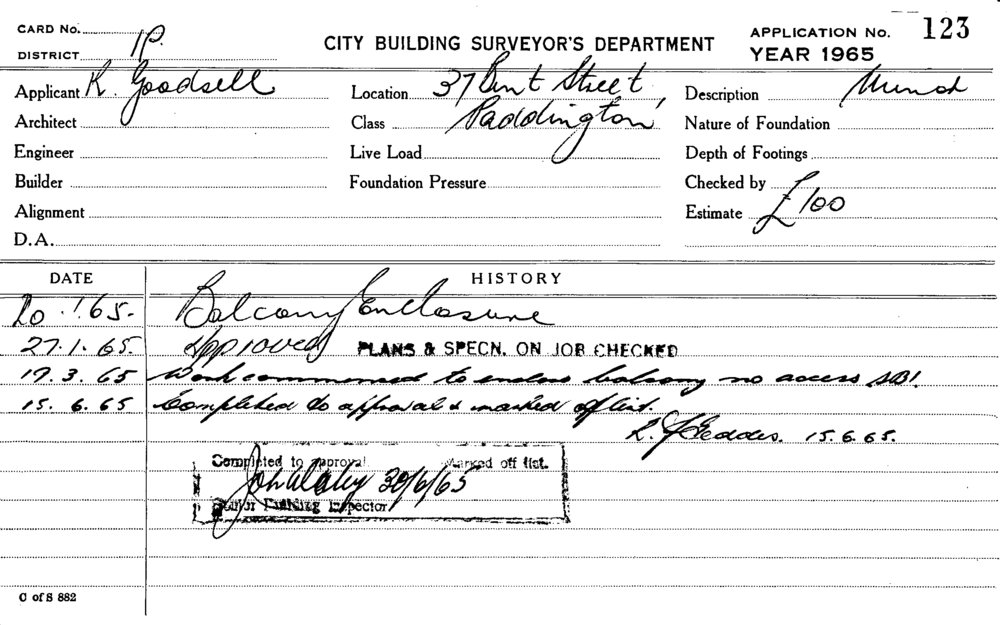 CARD No. 1P. CITY BUILDING SURVEYOR'S DEPARTMENT APPLICATION No. 123
DISTRICT YEAR 1965
Applicant K. Goodsell Location 37 Street, Description
Architect Class Paddington Nature of Foundation
Engineer Live Load Depth of Footings
Builder Foundation Pressure Checked by
Alignment Estimate £100
D.A.
DATE HISTORY
20.1.65. Balcony Enclosure
27.1.65. Approved PLANS & SPECN. ON JOB CHECKED
17.3.65 Work commenced to enclose balcony no access SBI.
15.6.65 Completed to approval & marked off list.
R. J. Geddes. 15.6.65.
Completed to approval Marked off list.
30/6/65
Senior Building Inspector
C of S 882